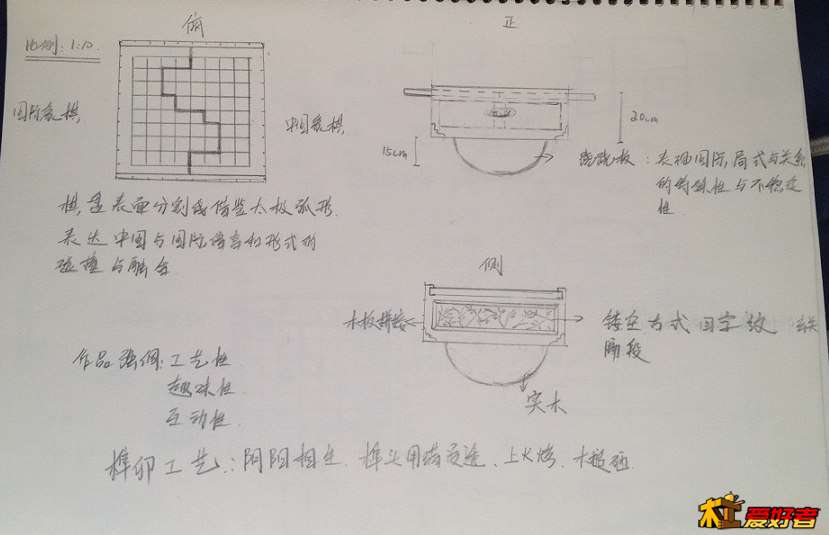 俯
正
比例:1:10.
国际象棋
中国象棋
20cm
15cm
跷跷板:表抽国际局式与关系
的特殊性与不稳定
性
棋盘表面分割线借鉴太极弧形.
表达中国与国际语言和形式的
碰撞与融合
侧
木板拼接
镂空方式回字纹
阶段
实木
作品强调:工艺性
趣味性
互动性
榫卯工艺:阴阳相生.榫头用
上火烤.木槌砸
木工爱好者